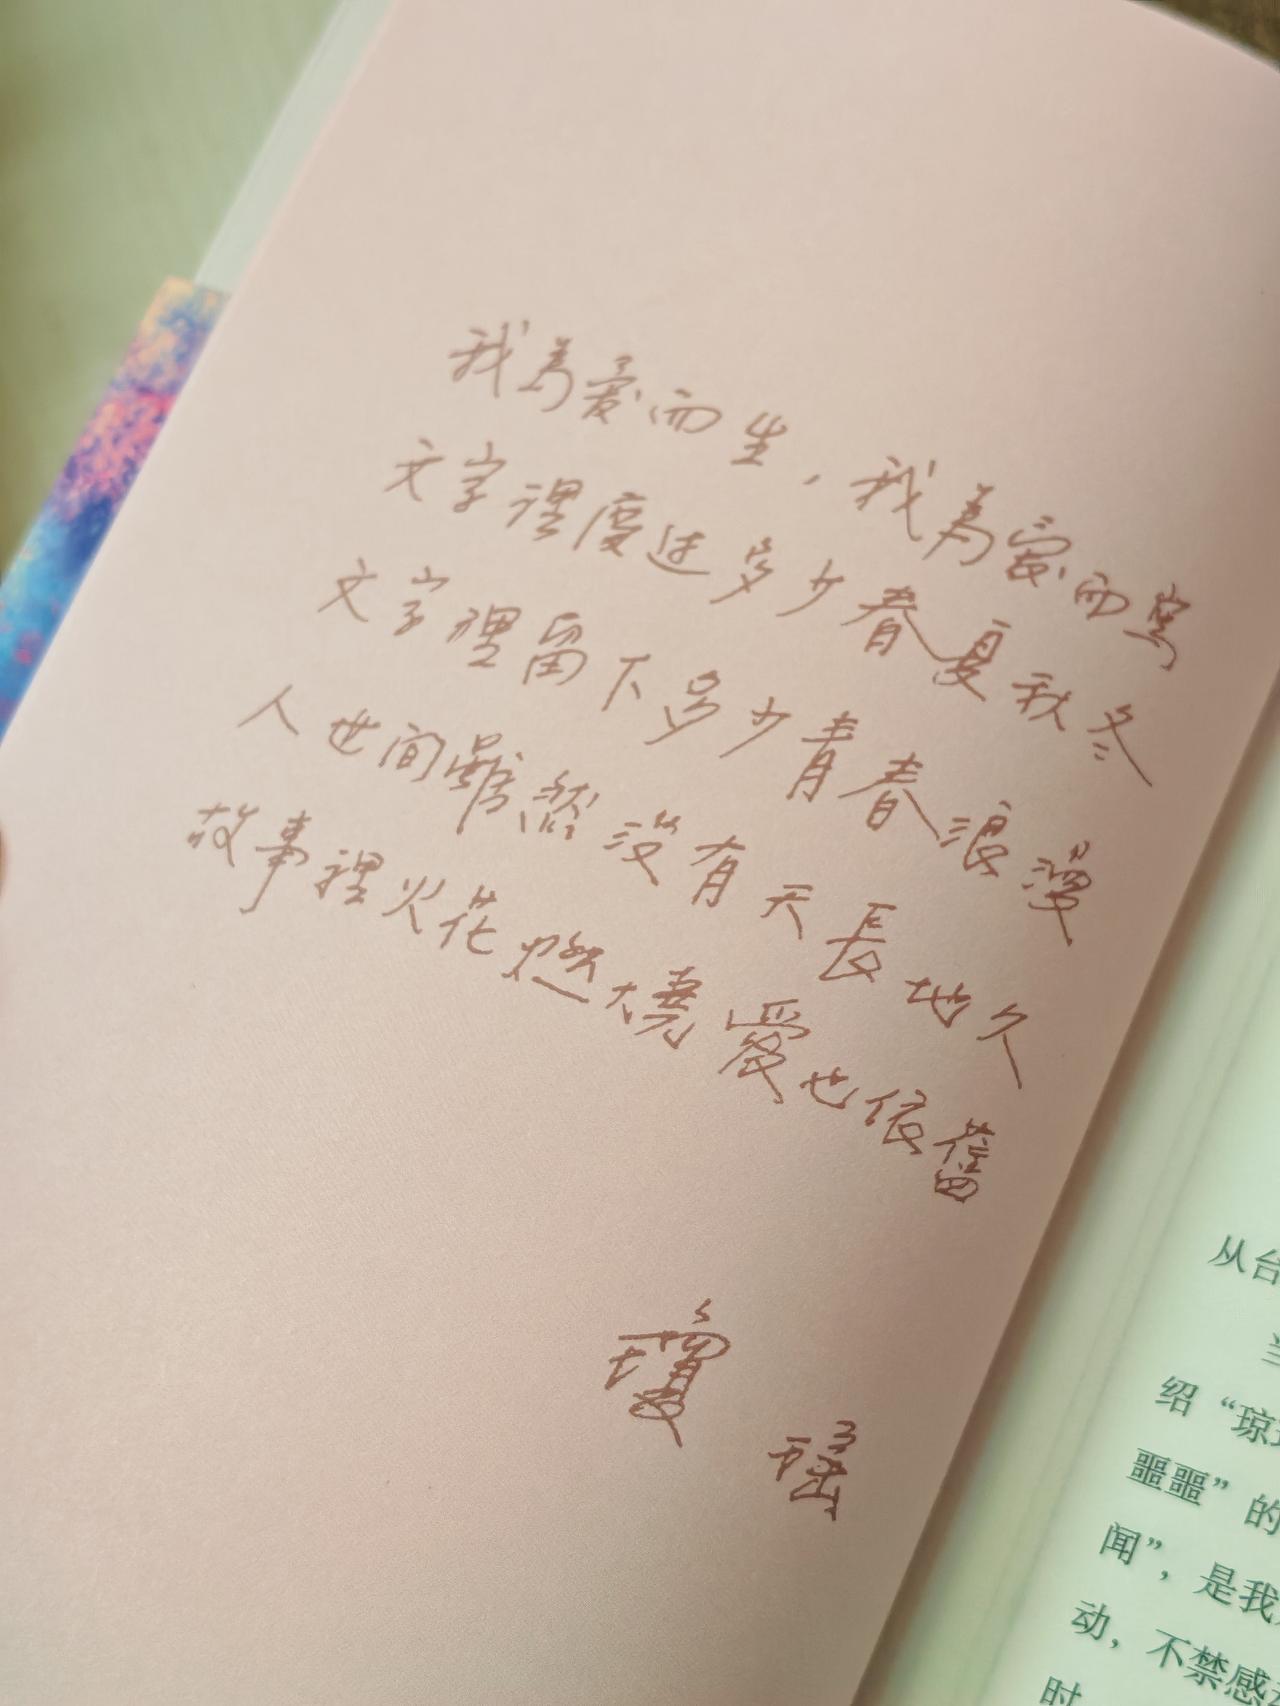 我為愛而生，我為愛而寫
文字裡度过多少春夏秋冬
文字裡留下多少青春浪漫
人世间雖然没有天長地久
故事裡火花燃燒愛也依舊
瓊瑤
从台
绍“琼
噩噩”的
闻”，是我
动，不禁感
时